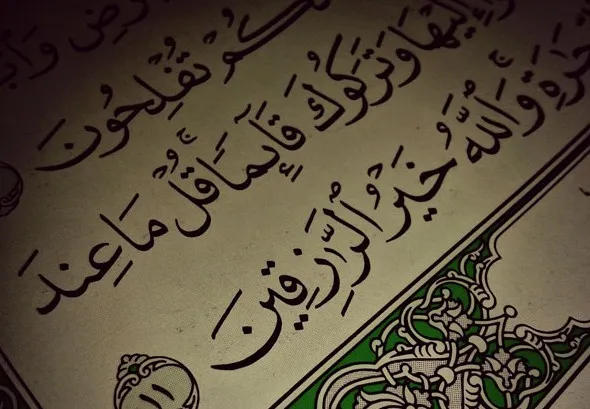 رْضِ وَٱبْ
كُمْ تُفْلِحُونَ
إِلَيْهَا وَتَرَكُوكَ قَآئِمًا ۚ قُلْ مَا عِندَ
جَـٰرَةِ ۚ وَٱللَّهُ خَيْرُ ٱلرَّٰزِقِينَ
١١